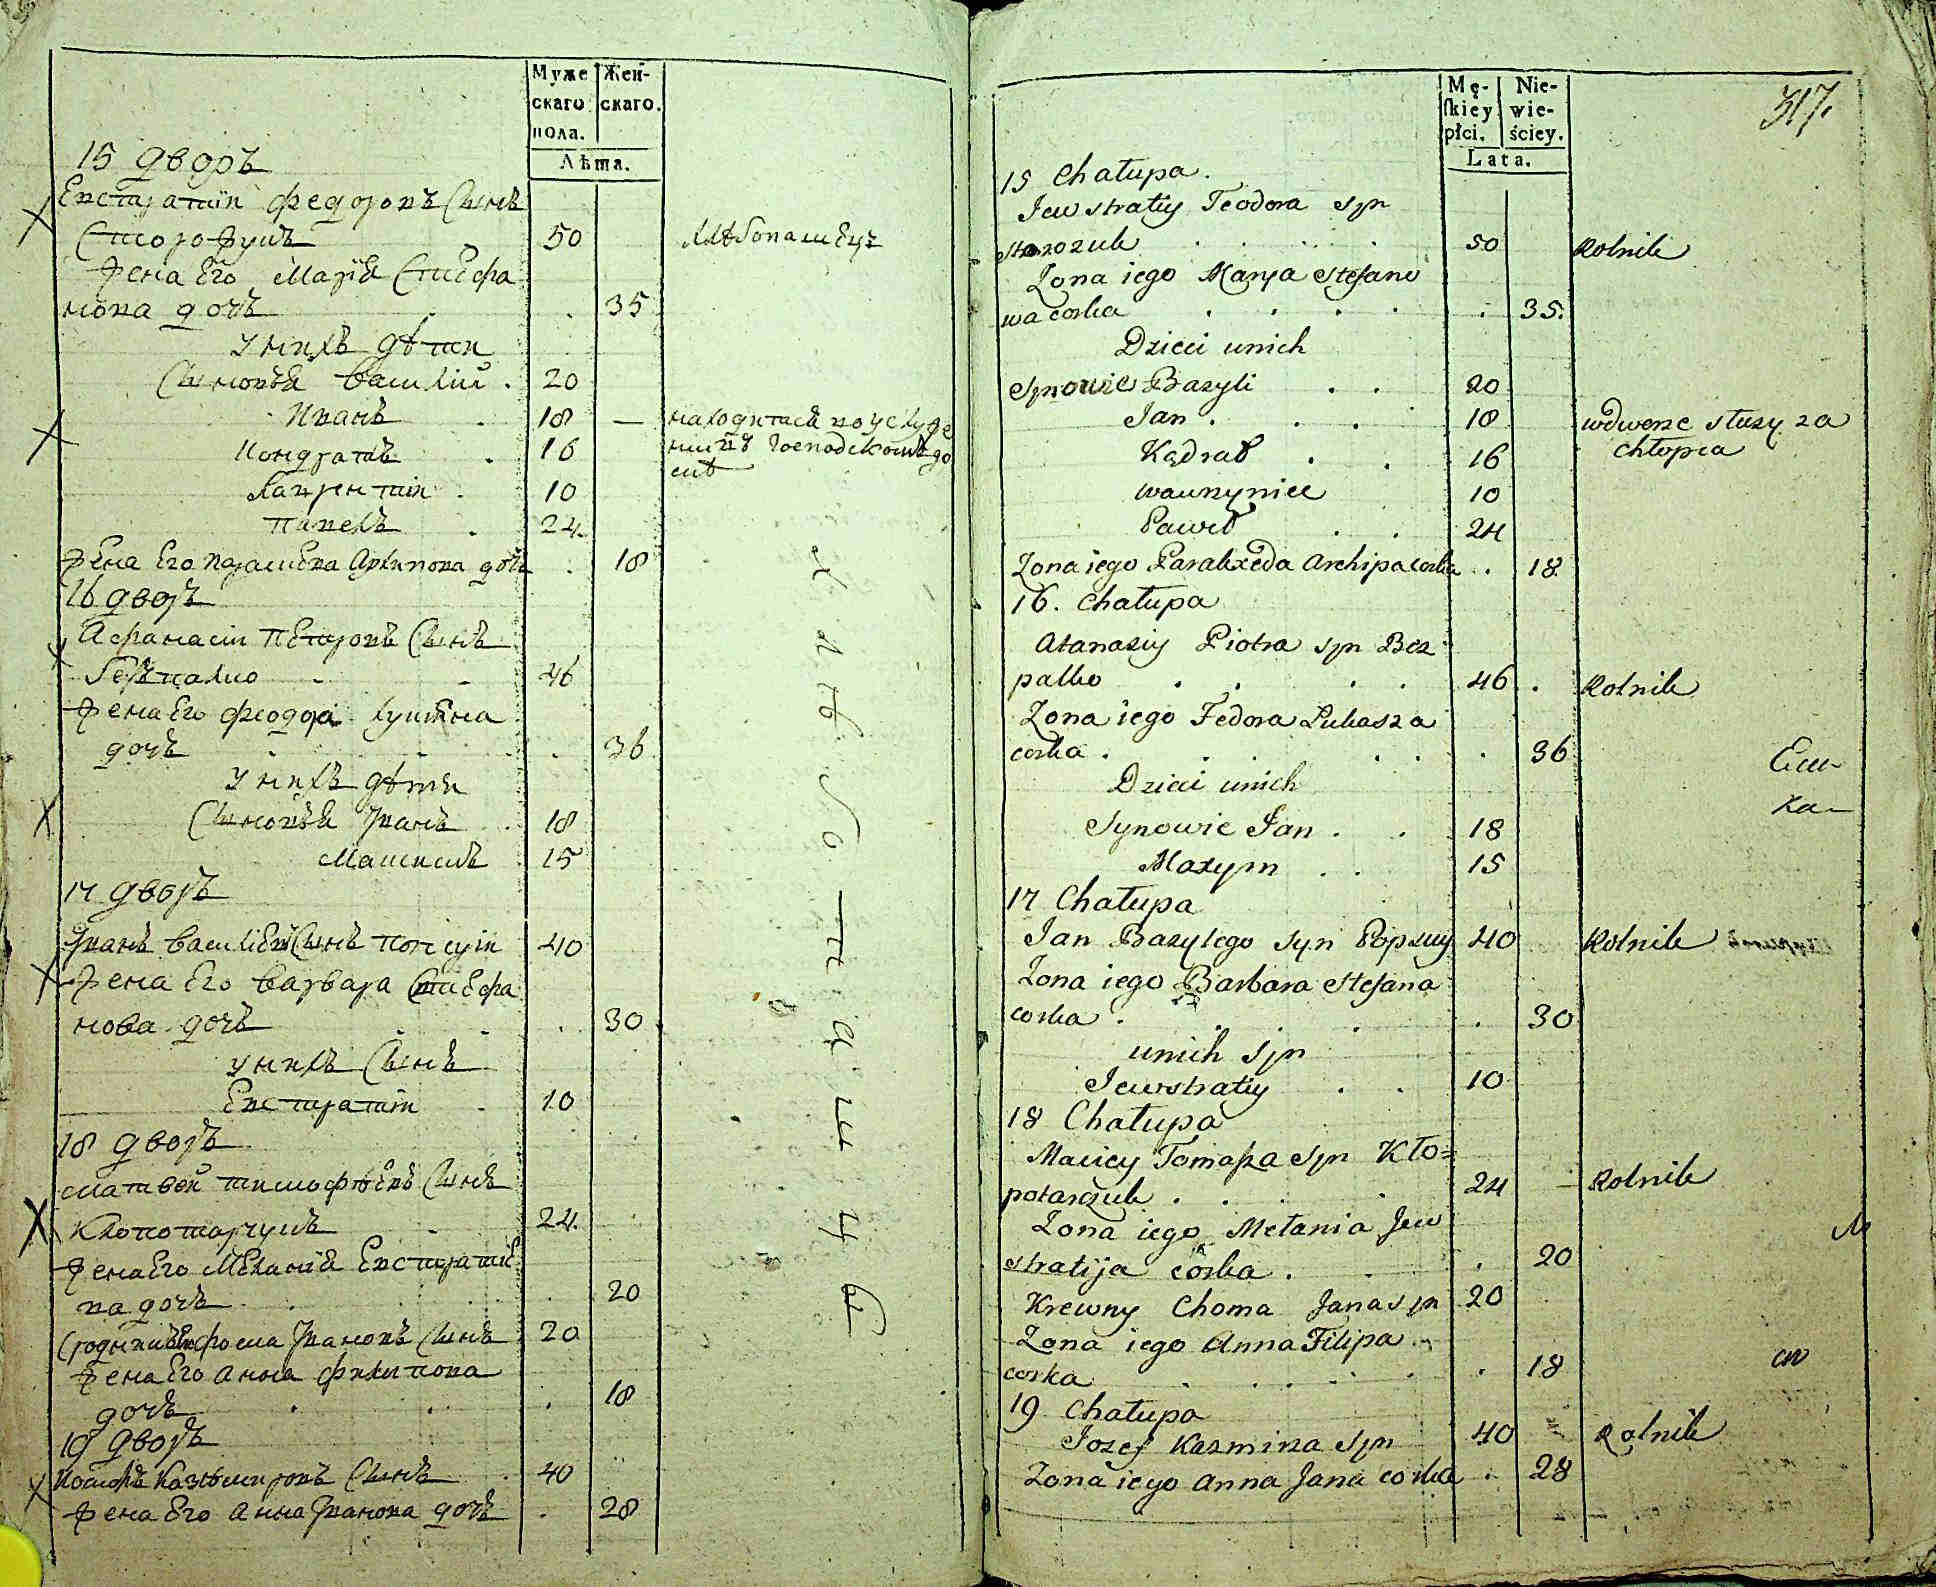 Муже
скаго
пола.
Жен-
скаго.
Лѣта.
15 дворъ
Евстратій Федоровъ Сынъ
Сторожукъ 50 хлѣбопашецъ
жена Его Марія Стефа
нова дочь 35
У нихъ дѣти
Сыновья Василій 20
Иванъ 18 —
Кондратъ 16
Лаврентій 10
Павелъ 24
жена Его Параскева Архипова дочь 18
16 дворъ
Афанасій Петровъ Сынъ
46
жена Его Феодора
дочь 36
У нихъ дѣти
Сыновья Иванъ 18
Максимъ 15
17 дворъ
Иванъ Василіевъ Сынъ 40
жена Его Варвара Стефа
нова дочь 30
у нихъ Сынъ
Евстратій 10
18 дворъ
Матвей Тимофѣевъ Сынъ
Клопотарчукъ 24
жена Его Меланія Евстратіе
ва дочь 20
Фома Ивановъ Сынъ 20
жена Его Анна Филипова
дочь 18
19 дворъ
Іосифъ Казимировъ Сынъ 40
жена Его Анна Иванова дочь 28
хлѣбопашцы
Mę-
skiey
płci.
Nie-
wie-
ściey.
Lata.
317.
15 Chałupa.
Jewstratiy Teodora syn
Storozuk 50 Rolnik
Zona iego Marya Stefano
wa corka 35.
Dzieci unich
Synowie Bazyli 20
Jan 18 wdworze służy za
Kądrat 16 chłopca
wawrzyniec 10
Paweł 24
Zona iego Paraxeda Archipa corka 18
16. Chałupa
Atanaziy Piotra syn Bez
palko 46 Rolnik
Zona iego Fedora Lukasza
corka 36
Dzieci unich
Synowie Jan 18
Maxym 15
17 Chałupa
Jan Bazylego syn 40 Rolnik
Zona iego Barbara Stefana
corka 30
unich syn
Jewstratiy 10
18 Chałupa
Maciey Tomasza syn Kło=
potarczuk 24 Rolnik
Zona iego Melania Jew
stratija corka 20
Krewny Choma Jana syn 20
Zona iego Anna Filipa
corka 18
19 Chałupa
Jozef Kazmirza syn 40 Rolnik
Zona iego Anna Jana corka 28